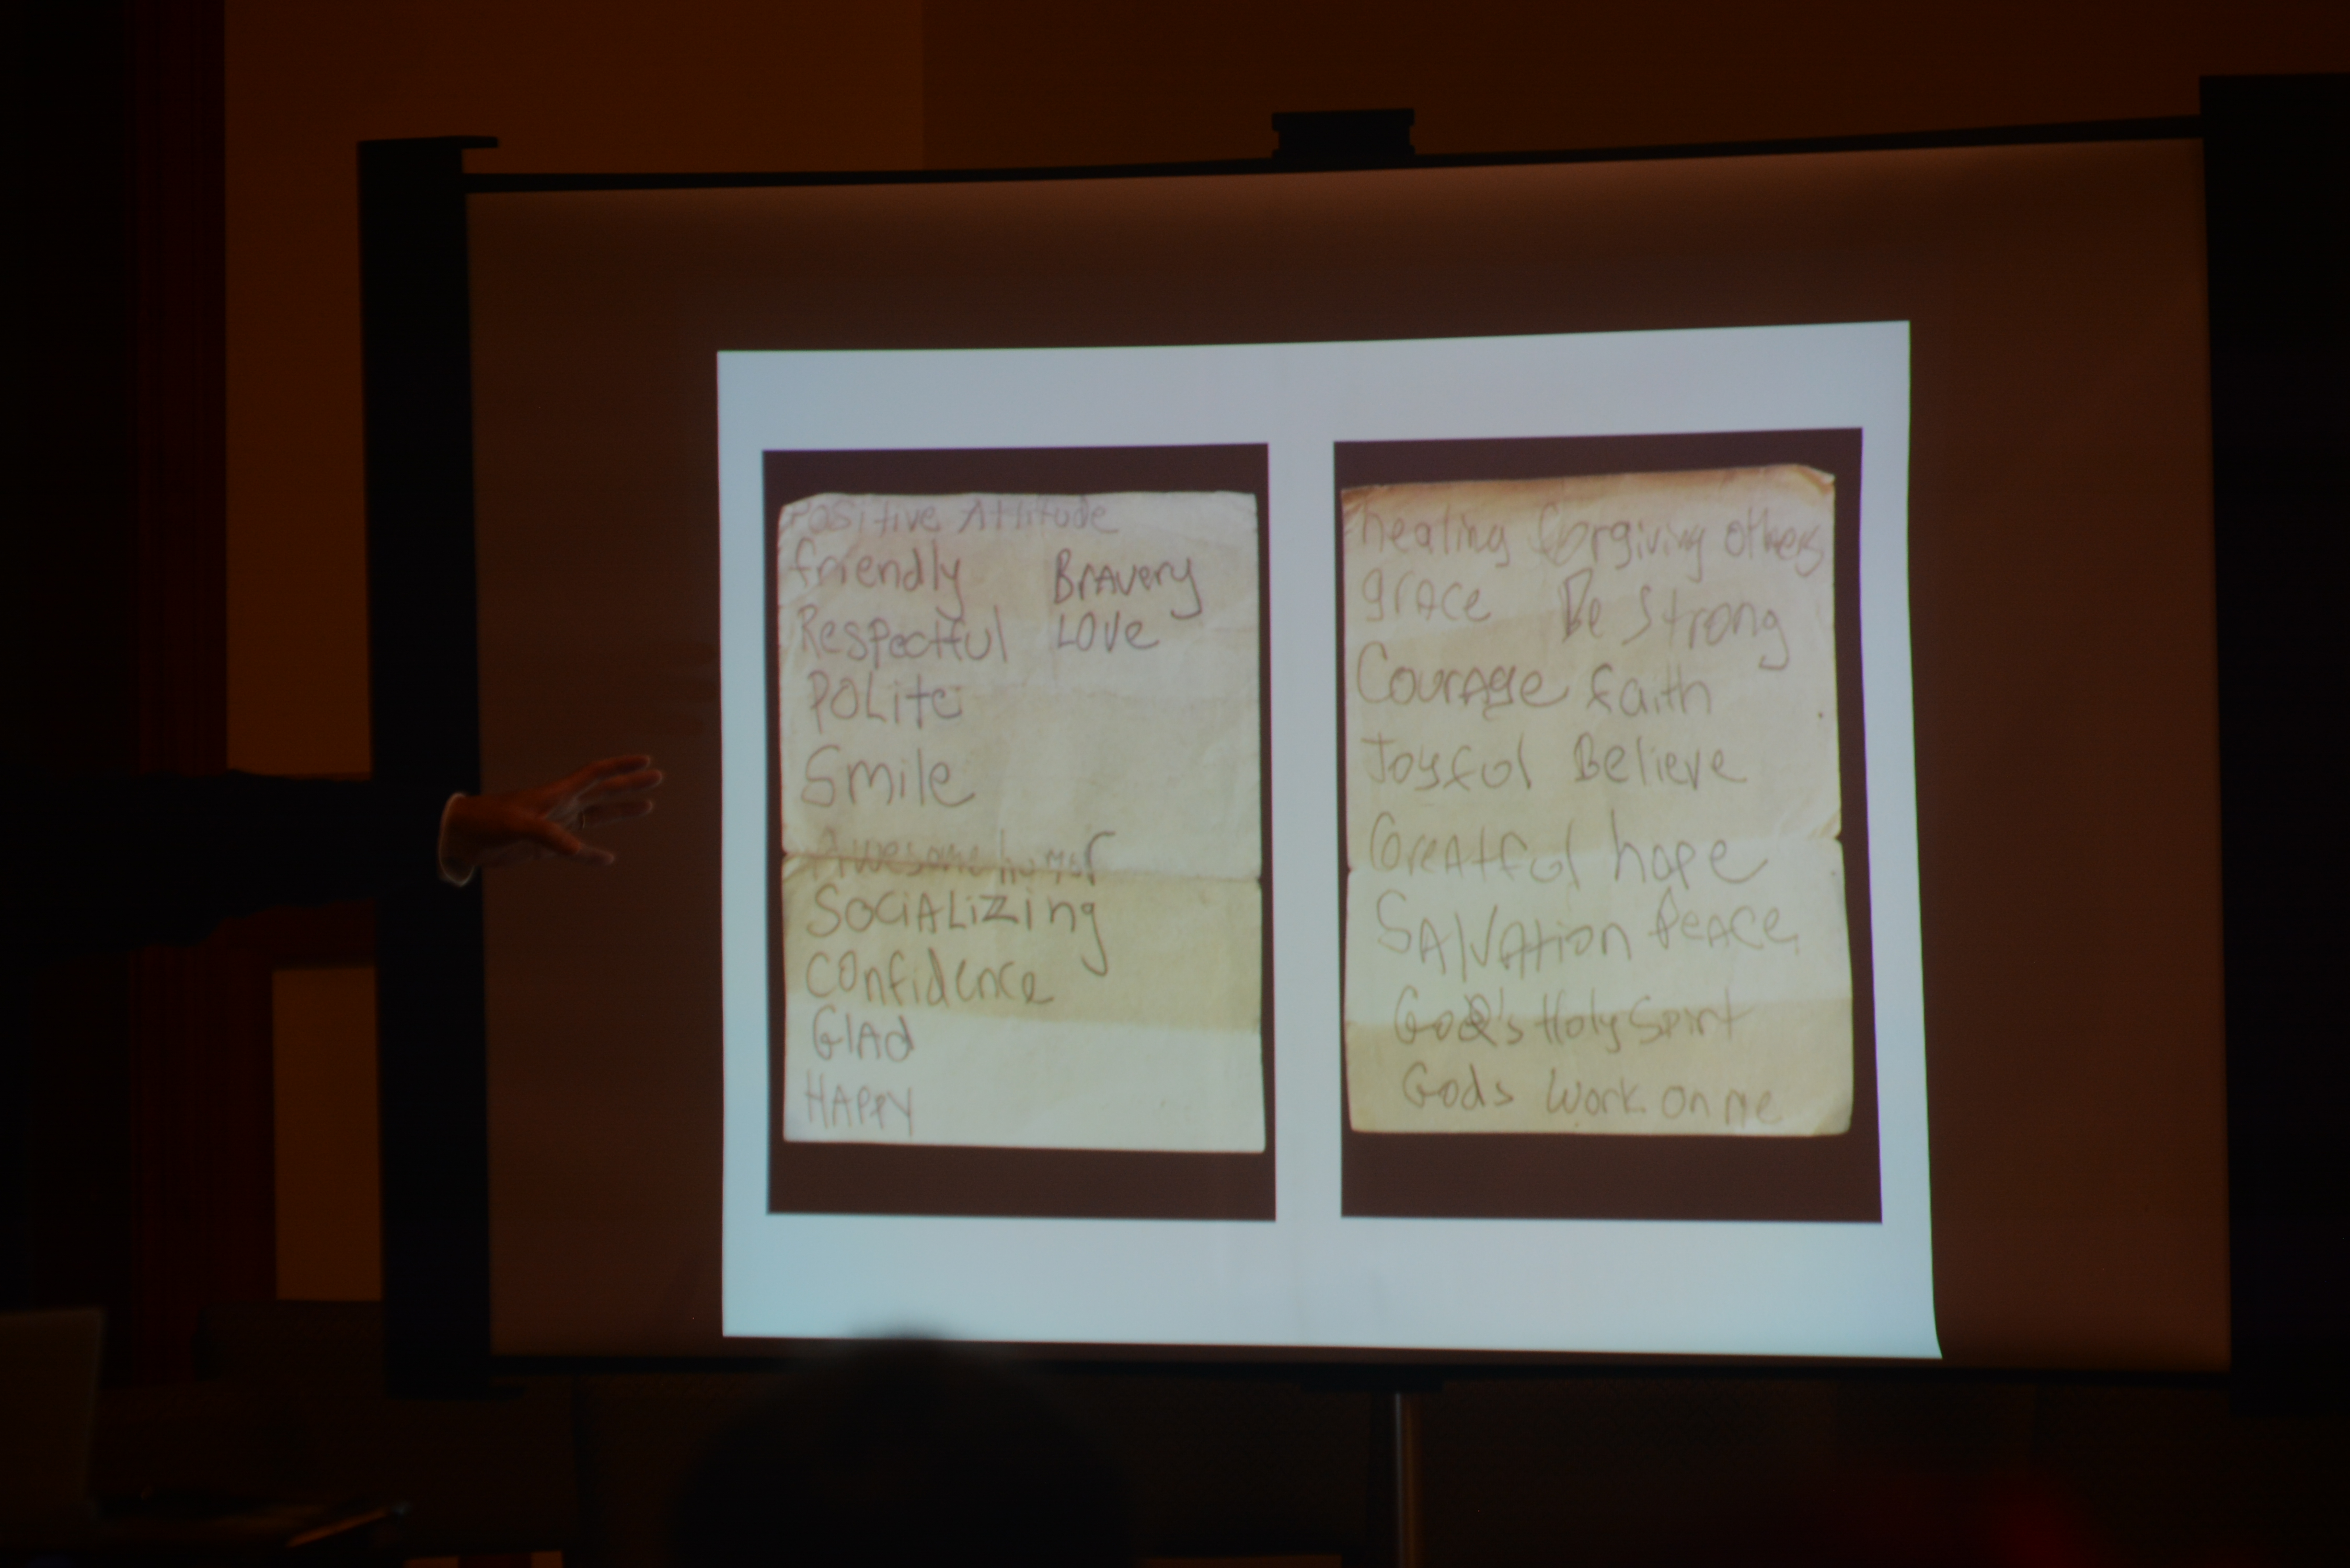 Positive Attitude
friendly Bravery
Respectful Love
Polite
Smile
Awesome humor
Socializing
Confidence
Glad
Happy
healing forgiving others
grace Be Strong
Courage faith
Joyful Believe
Greatful hope
Salvation Peace
God's Holy Spirit
Gods Work on me